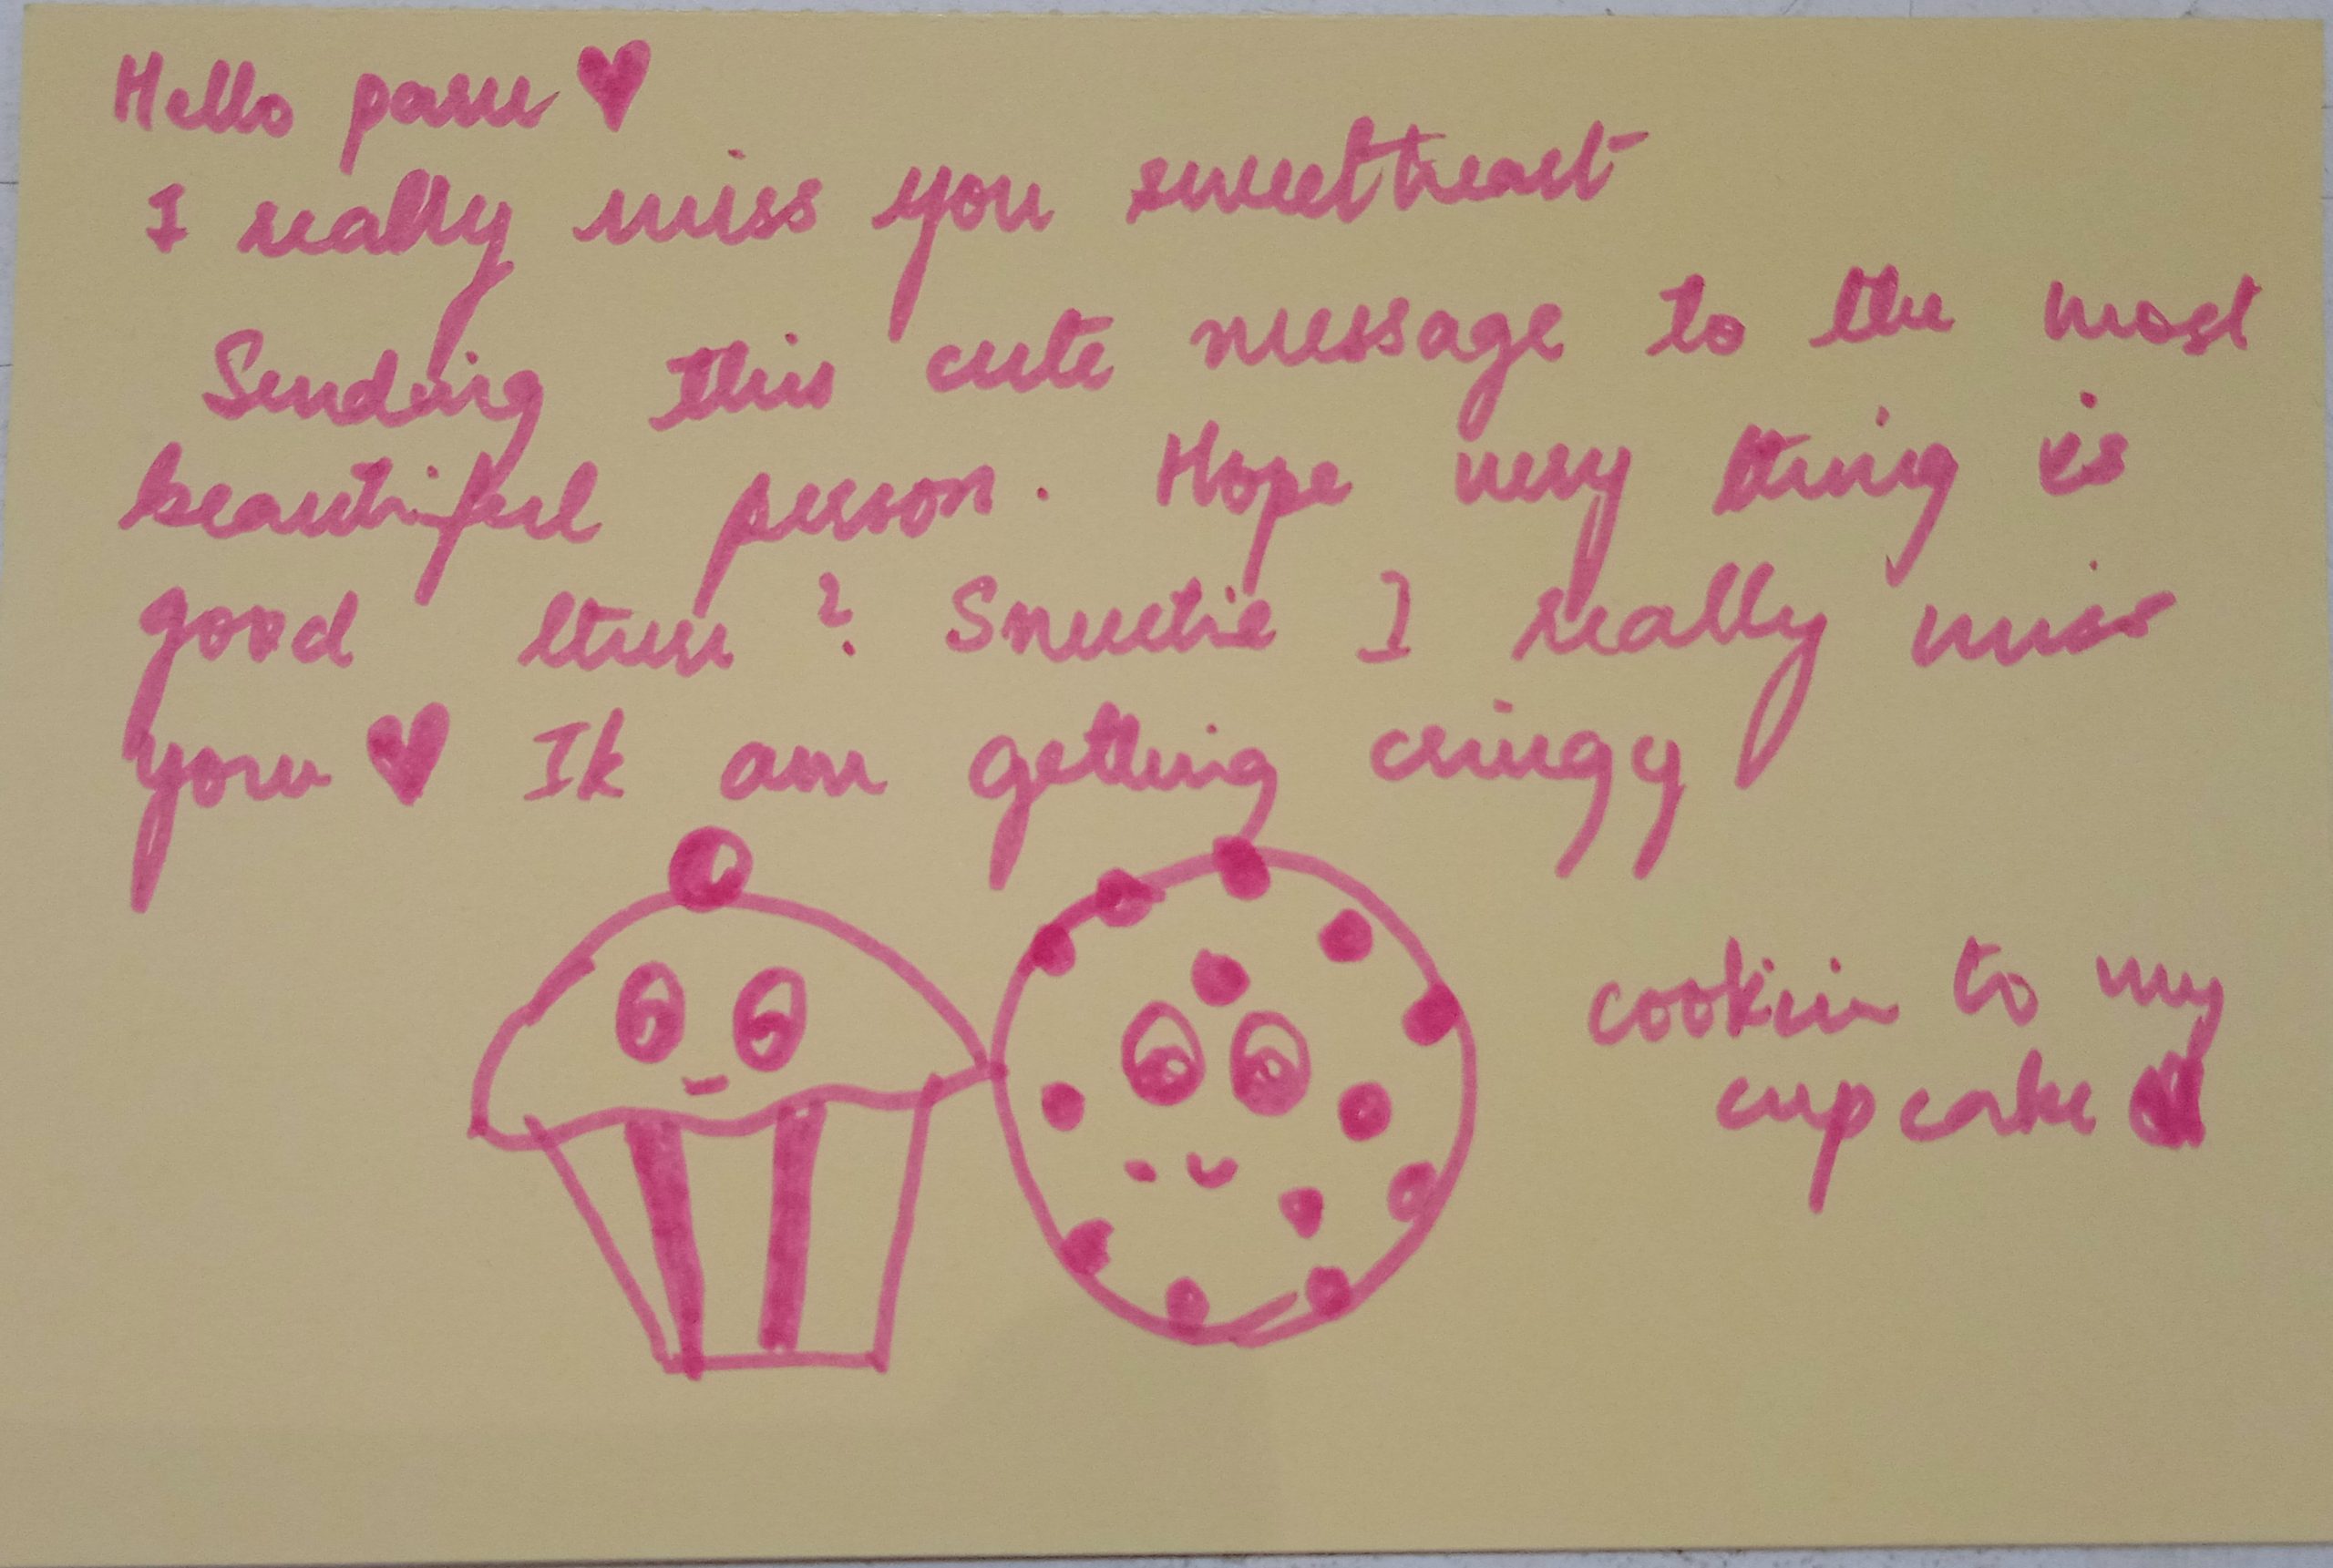 Hello paru ♥
I really miss you sweetheart
Sending this cute message to the most
beautiful person. Hope very thing is
good there? Sweetie I really miss
youu ♥ Ik am getting cringy
cookie to my
cupcake ♥